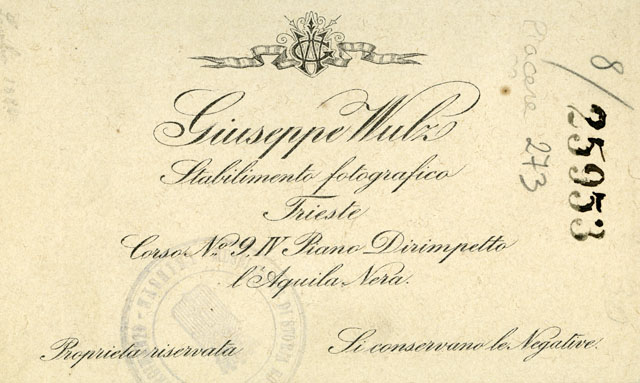 Giuseppe Wulz
Stabilimento fotografico
Trieste
Corso N.º 9, IV Piano Dirimpetto
l'Aquila Nera.
Proprietà riservata
Si conservano le Negative.
8/
25953
273